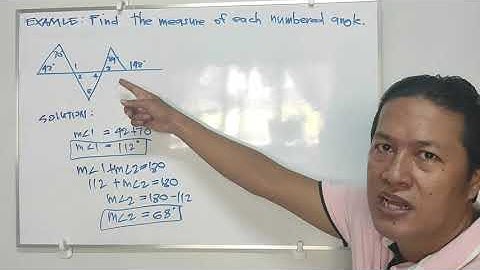 EXAMLE: Find the measure of each numbered angle.
42° 1
2 4
SOLUTION:
m∠1 = 42+70
m∠1 = 112°
m∠1+m∠2=180
112 + m∠2=180
m∠2 = 180-112
m∠2 = 68°